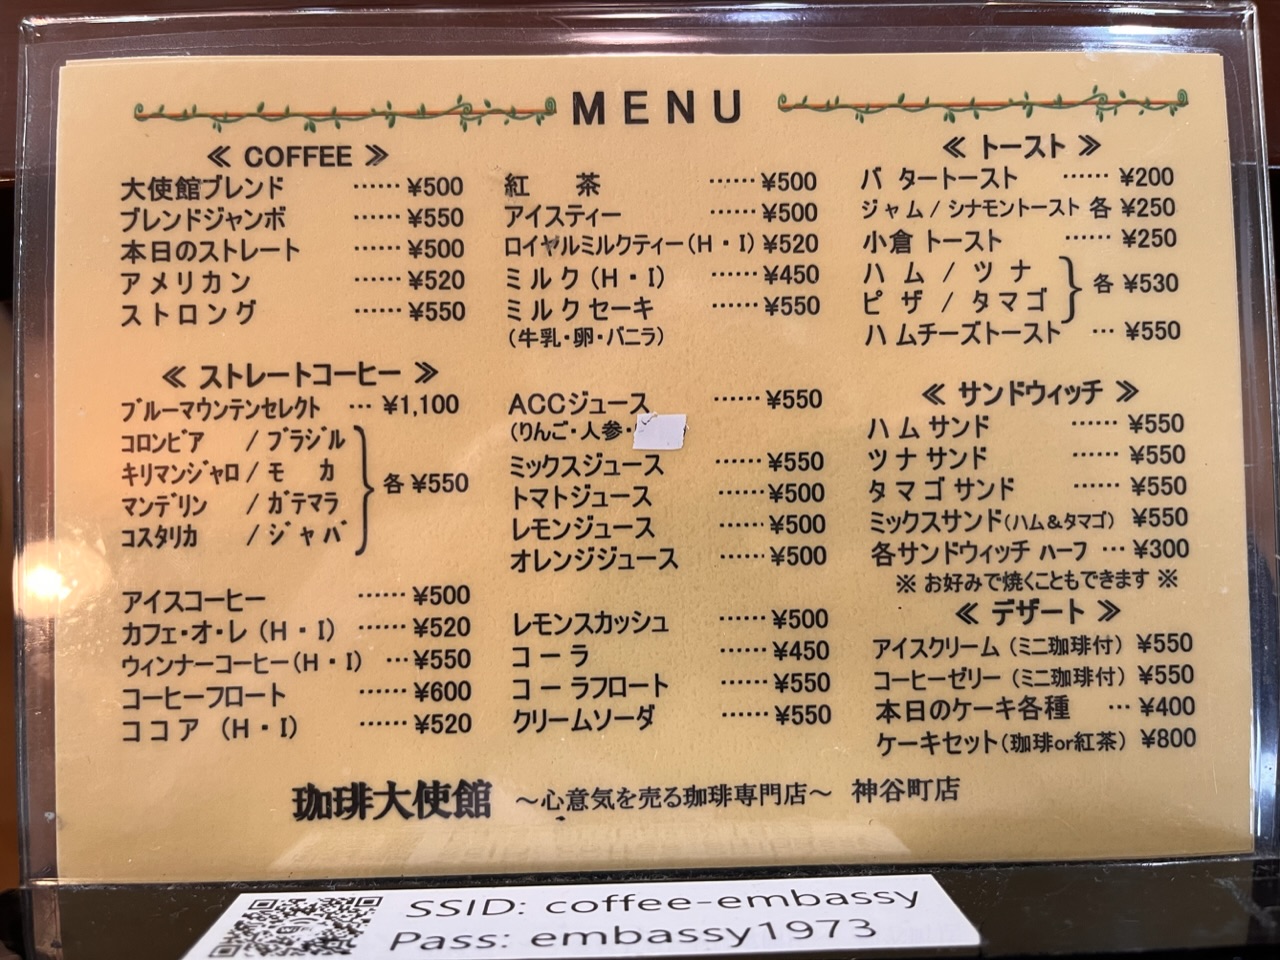 MENU
≪ COFFEE ≫
大使館ブレンド ……¥500
ブレンドジャンボ ……¥550
本日のストレート ……¥500
アメリカン ……¥520
ストロング ……¥550
≪ ストレートコーヒー ≫
ブルーマウンテンセレクト …¥1,100
コロンビア / ブラジル
キリマンジャロ / モカ
マンデリン / ガテマラ
コスタリカ / ジャバ
各 ¥550
アイスコーヒー ……¥500
カフェ・オ・レ (H・I) ……¥520
ウィンナーコーヒー(H・I) …¥550
コーヒーフロート ……¥600
ココア (H・I) ……¥520
紅 茶 ……¥500
アイスティー ……¥500
ロイヤルミルクティー(H・I) ¥520
ミルク(H・I) ……¥450
ミルクセーキ ……¥550
(牛乳・卵・バニラ)
ACCジュース ……¥550
(りんご・人参・
ミックスジュース ……¥550
トマトジュース ……¥500
レモンジュース ……¥500
オレンジジュース ……¥500
レモンスカッシュ ……¥500
コーラ ……¥450
コーラフロート ……¥550
クリームソーダ ……¥550
≪ トースト ≫
バタートースト ……¥200
ジャム / シナモントースト 各 ¥250
小倉トースト ……¥250
ハム / ツナ
ピザ / タマゴ
各 ¥530
ハムチーズトースト …¥550
≪ サンドウィッチ ≫
ハムサンド ……¥550
ツナサンド ……¥550
タマゴサンド ……¥550
ミックスサンド(ハム&タマゴ) ¥550
各サンドウィッチ ハーフ …¥300
※ お好みで焼くこともできます ※
≪ デザート ≫
アイスクリーム (ミニ珈琲付) ¥550
コーヒーゼリー (ミニ珈琲付) ¥550
本日のケーキ各種 …¥400
ケーキセット(珈琲or紅茶) ¥800
珈琲大使館 ～心意気を売る珈琲専門店～ 神谷町店
SSID: coffee-embassy
Pass: embassy1973